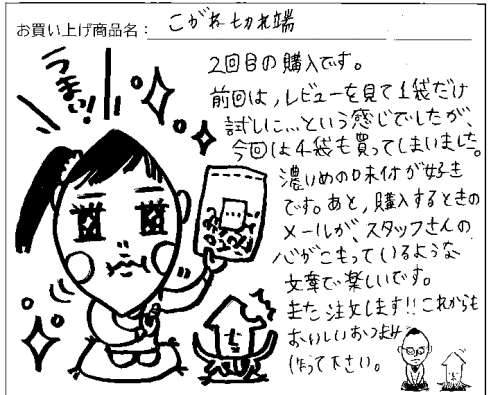 お買い上げ商品名：こがね切れ端
うまい!
2回目の購入です。
前回は、レビューを見て1袋だけ
試しに…という感じでしたが、
今回は4袋も買ってしまいました。
濃いめの味付が好き
です。あと、購入するときの
メールが、スタッフさんの
心がこもっているような
文章で楽しいです。
また注文します!!これからも
おいしいおつまみ
作って下さい。